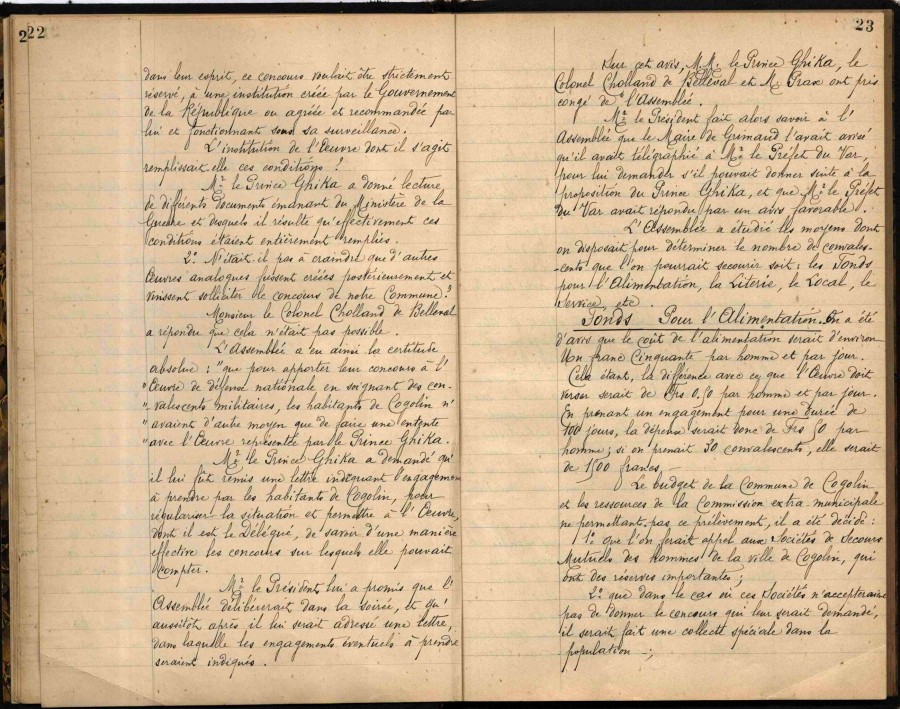 222
dans leur esprit, ce concours voulait être strictement
réservé, à une institution créée par le Gouvernement
de la République ou agréée et recommandée par
lui et fonctionnant sous sa surveillance.
L'institution de l'Œuvre dont il s'agit
remplissait elle ces conditions ?
Mr le Prince Ghika a donné lecture
de différents documents émanant du Ministère de la
Guerre et desquels il résulte qu'effectivement ces
conditions étaient entièrement remplies.
2º N'était il pas à craindre que d'autres
Œuvres analogues fussent créées postérieurement et
vinssent solliciter le concours de notre Commune ?
Monsieur le Colonel Cholland de Belleval
a répondu que cela n'était pas possible.
L'Assemblée a eu ainsi la certitude
absolue : "que pour apporter leur concours à l'
"Œuvre de défense nationale en soignant des con-
"-valescents militaires, les habitants de Cogolin n'
"avaient d'autre moyen que de faire une entente
"avec l'Œuvre représentée par le Prince Ghika.
Mr le Prince Ghika a demandé qu'
il lui fût remis une lettre indiquant l'engagement
à prendre par les habitants de Cogolin, pour
régulariser la situation et permettre à l'Œuvre,
dont il est le Délégué, de savoir d'une manière
effective les concours sur lesquels elle pouvait
compter.
Mr le Président lui a promis que l'
Assemblée délibérerait dans la soirée, et qu'
aussitôt après il lui serait adressé une lettre,
dans laquelle les engagements éventuels à prendre
seraient indiqués.
23
Sur cet avis, M.M. le Prince Ghika, le
Colonel Cholland de Belleval et M. Prax ont pris
congé de l'Assemblée.
Mr le Président fait alors savoir à l'
Assemblée que le Maire de Grimaud l'avait avisé
qu'il avait télégraphié à Mr le Préfet du Var,
pour lui demander s'il pouvait donner suite à la
proposition du Prince Ghika, et que Mr le Préfet
du Var avait répondu par un avis favorable.
L'Assemblée a étudié les moyens dont
on disposait pour déterminer le nombre de convales-
-cents que l'on pourrait secourir soit : les Fonds
pour l'Alimentation, la Literie, le Local, le
Service, etc
Fonds Pour l'Alimentation. On a été
d'avis que le coût de l'alimentation serait d'environ
Un franc Cinquante par homme et par jour.
Cela étant, la différence avec ce que l'Œuvre doit
verser serait de Frs 0,50 par homme et par jour.
En prenant un engagement pour une durée de
100 jours, la dépense serait donc de Frs 50 par
homme ; si on prenait 30 convalescents, elle serait
de 1500 francs.
Le budget de la Commune de Cogolin
et les ressources de la Commission extra-municipale
ne permettant pas ce prélèvement, il a été décidé :
1º que l'on ferait appel aux Sociétés de Secours
Mutuels des hommes de la ville de Cogolin, qui
ont des réserves importantes ;
2º que dans le cas où ces Sociétés n'accepteraient
pas de donner le concours qui leur serait demandé,
il serait fait une collecte spéciale dans la
population - ;